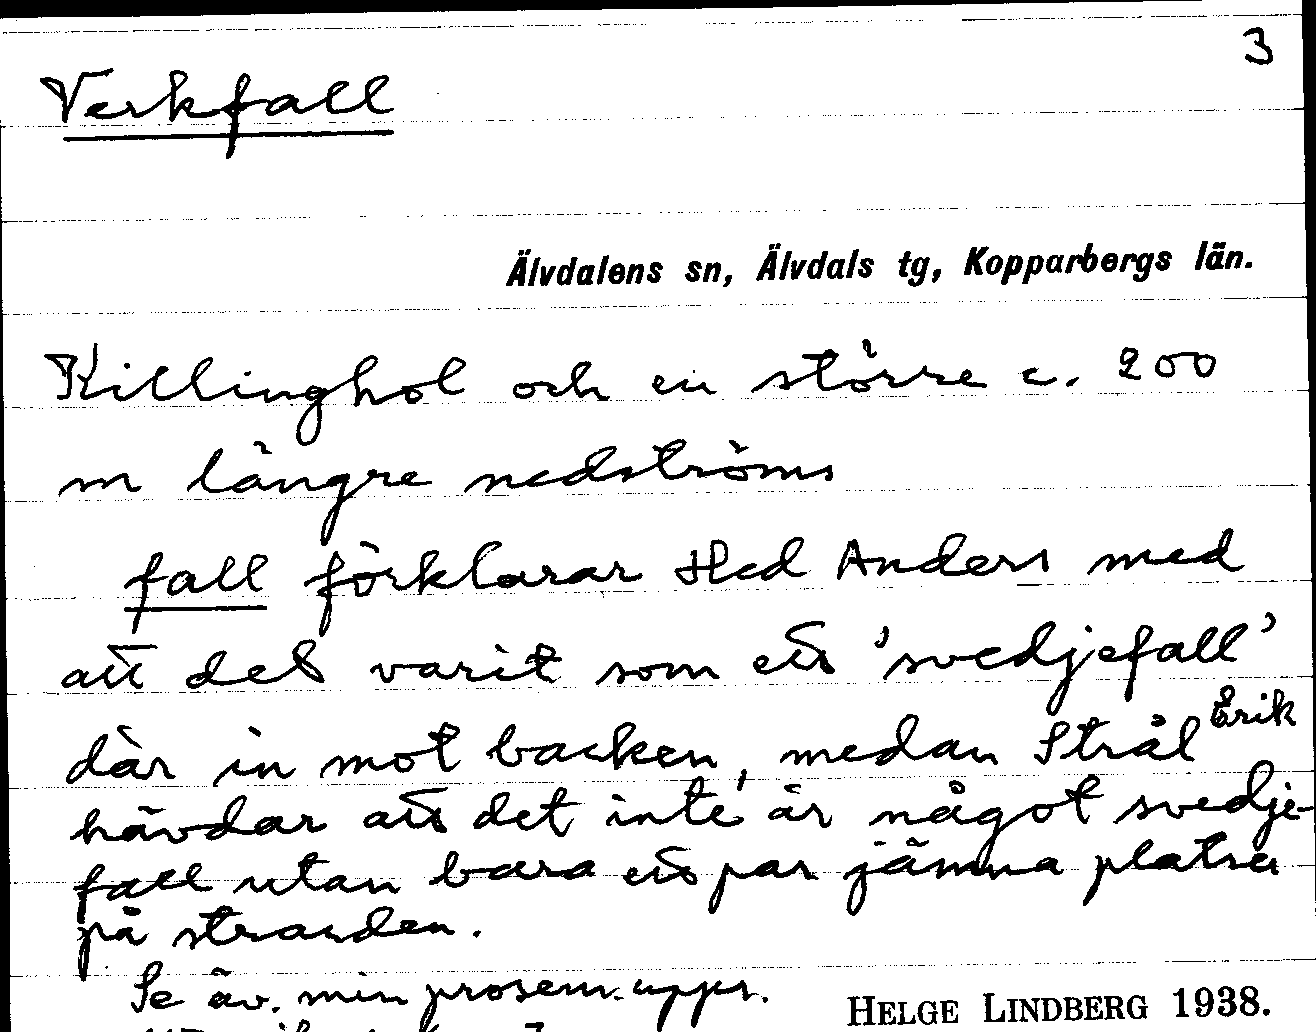 3
Verkfall
Älvdalens sn, Älvdals tg, Kopparbergs län.
Killinghol och en större c. 200
m längre nedströms
fall förklarar Hed Anders med
att det varit som ett 'svedjefall'
där in mot backen, medan Strål Erik
hävdar att det inte är något svedje-
fall utan bara ett par jämna platser
på stranden.
Se äv. min prosem. upps.
HELGE LINDBERG 1938.